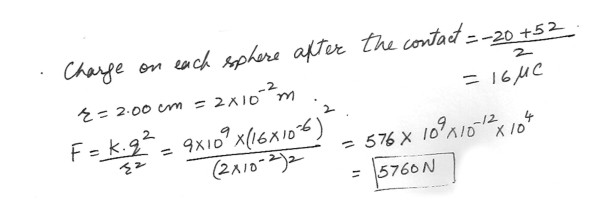 . Charge on each sphere after the contact = -20 + 52 / 2
= 16 μC
r = 2.00 cm = 2×10⁻² m.
F = K.q² / r² = 9×10⁹ ×(16×10⁻⁶)² / (2×10⁻²)² = 576 × 10⁹×10⁻¹²× 10⁴
= 5760 N